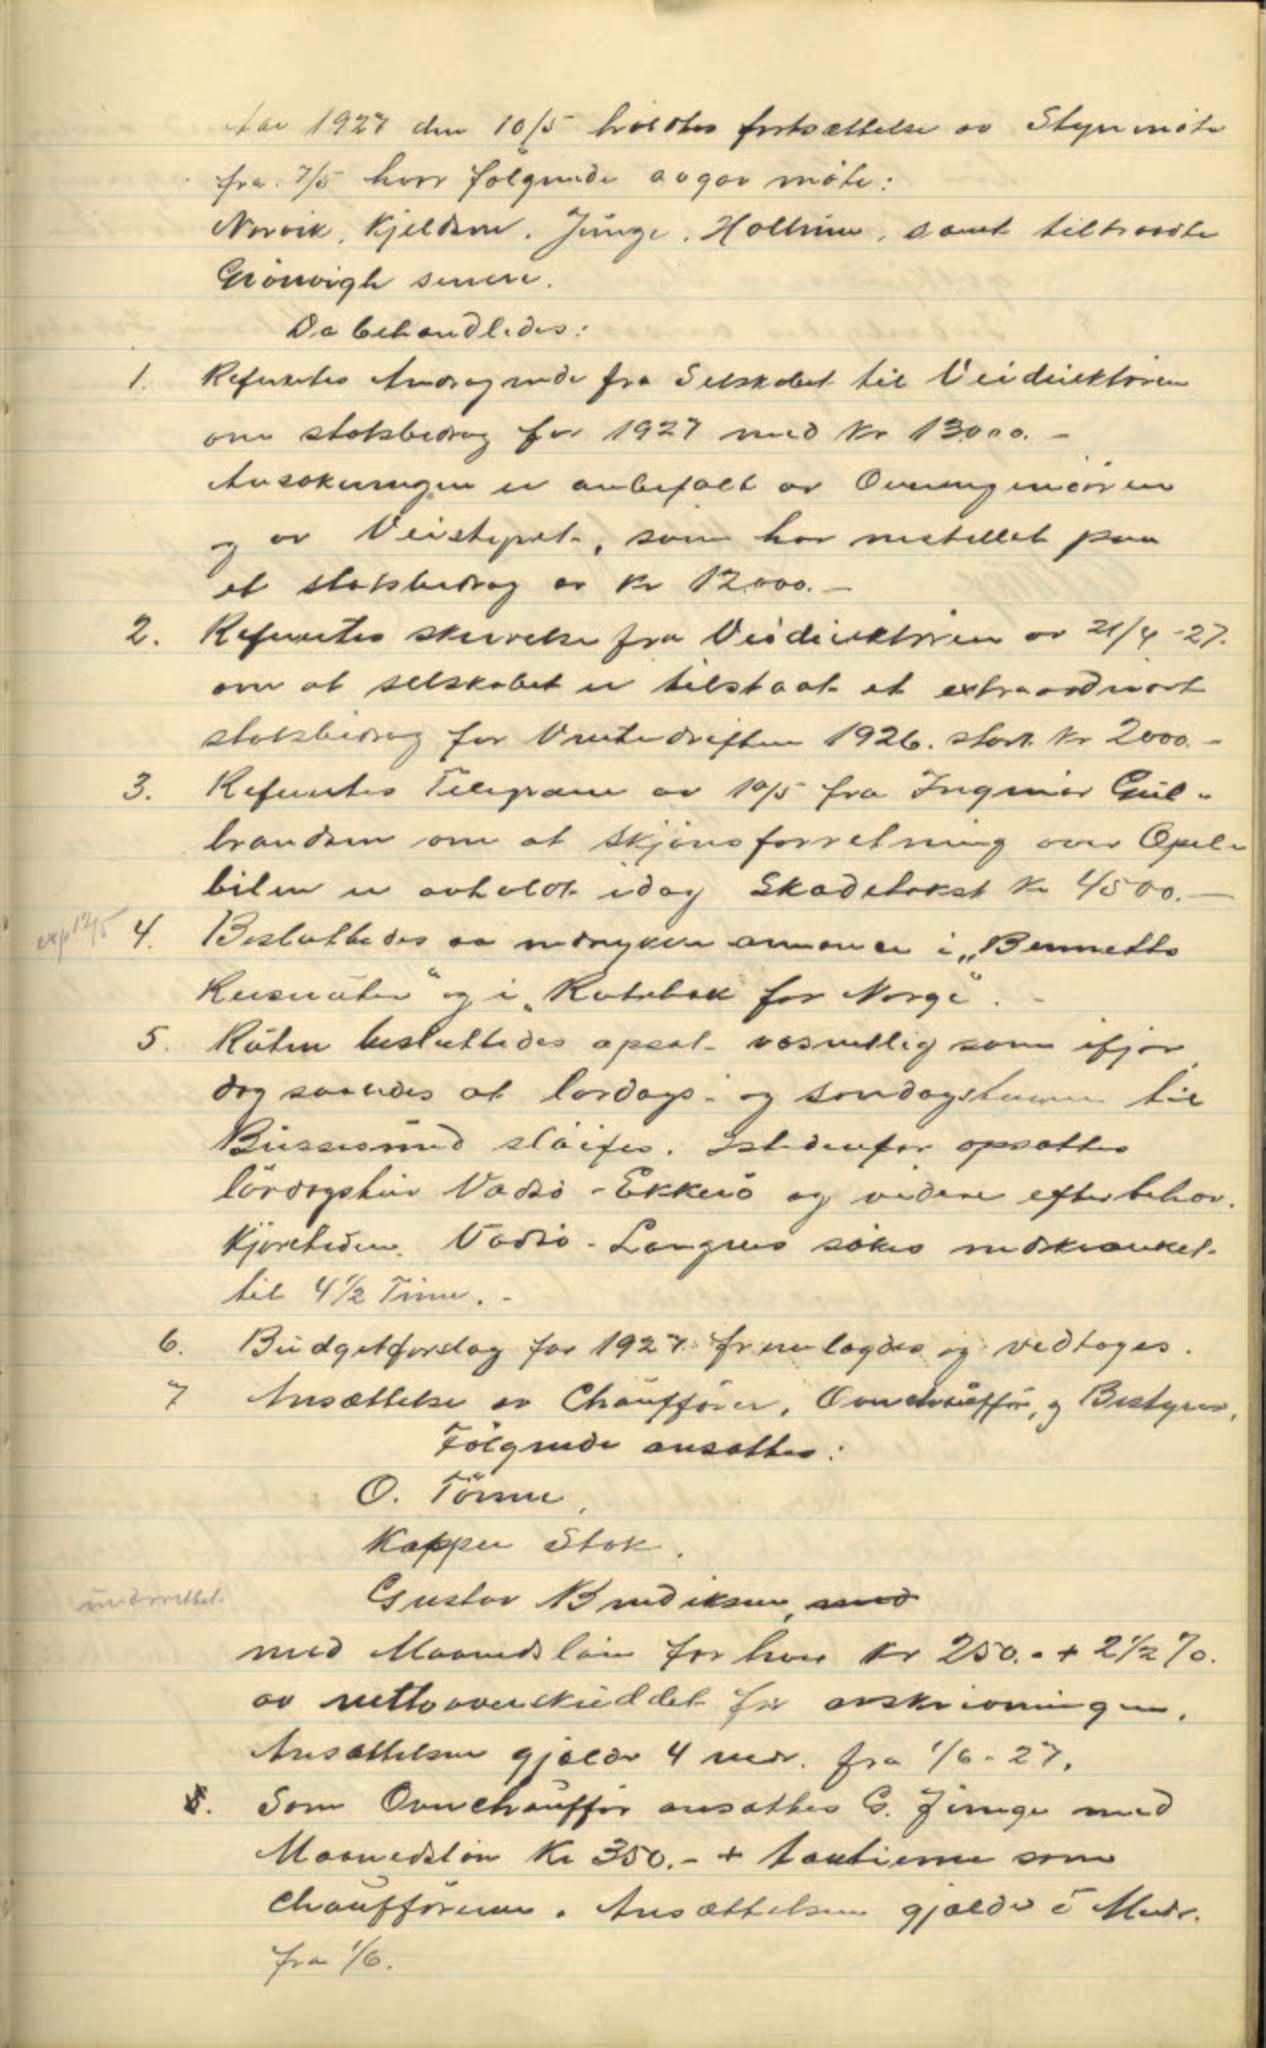 Aar 1927 den 10/5 holdtes fortsættelse av Styremöte
fra 7/5 hvor fölgende avgav möte:
Norvik, Kjeldsen, Junge, Holtmine, samt tiltraadte
Grönvigh senere.
Da behandledes:
1. Refereretes Andragende fra Selskabet til Veidirektören
om statsbidrag for 1927 med Kr 13000.-
Ansökningen er anbefalt av Overingeniören
og av Veistyret, som har indstillet paa
et statsbidrag av Kr 12.000.-
2. Refereretes skrivelse fra Veidirektören av 21/4-27.
om at selskabet er tilstaat et extraordinært
statsbidrag for Vinterdriften 1926. stort Kr 2000.-
3. Refereretes Telegram av 10/5 fra Ingmar Gul-
brandsen om at Skjönsforretning over Opel-
bilen er avholdt idag Skadetakst Kr 4500.-
exp 12/5 4. Besluttedes at indrykke annonce i „Bennetts
Reiseruter" og i „Rutebok for Norge".-
5. Ruten besluttedes opsat væsentlig som ifjor
dog saaledes at lördags- og söndagsturene til
Bussesund slöifes. Istedenfor opsattes
lördagstur Vadsö - Ekkerö og videre efter behov.
Kjöretiden Vadsö - Langnes sökes indskrænket
til 4 1/2 Time.-
6. Budgetforslag for 1927 fremlagdes og vedtoges.
7 Ansættelse av Chauffören, Overchaufför, og Bestyrer,
Fölgende ansattes:
O. Törme,
Kasper Stok.
underrettet. Gustav Bendiksen, med
med Maanedslön for hver Kr 250.- + 2 1/2 %.
av nettooverskuddet för avskrivningen.
Ansættelsen gjælder 4 mdr. fra 1/6-27.
8. Som Overchaufför ansattes G. Junge med
Maanedslön Kr 350.- + tantieme som
chauffören. Ansættelsen gjælder 5 Mndr.
fra 1/6.